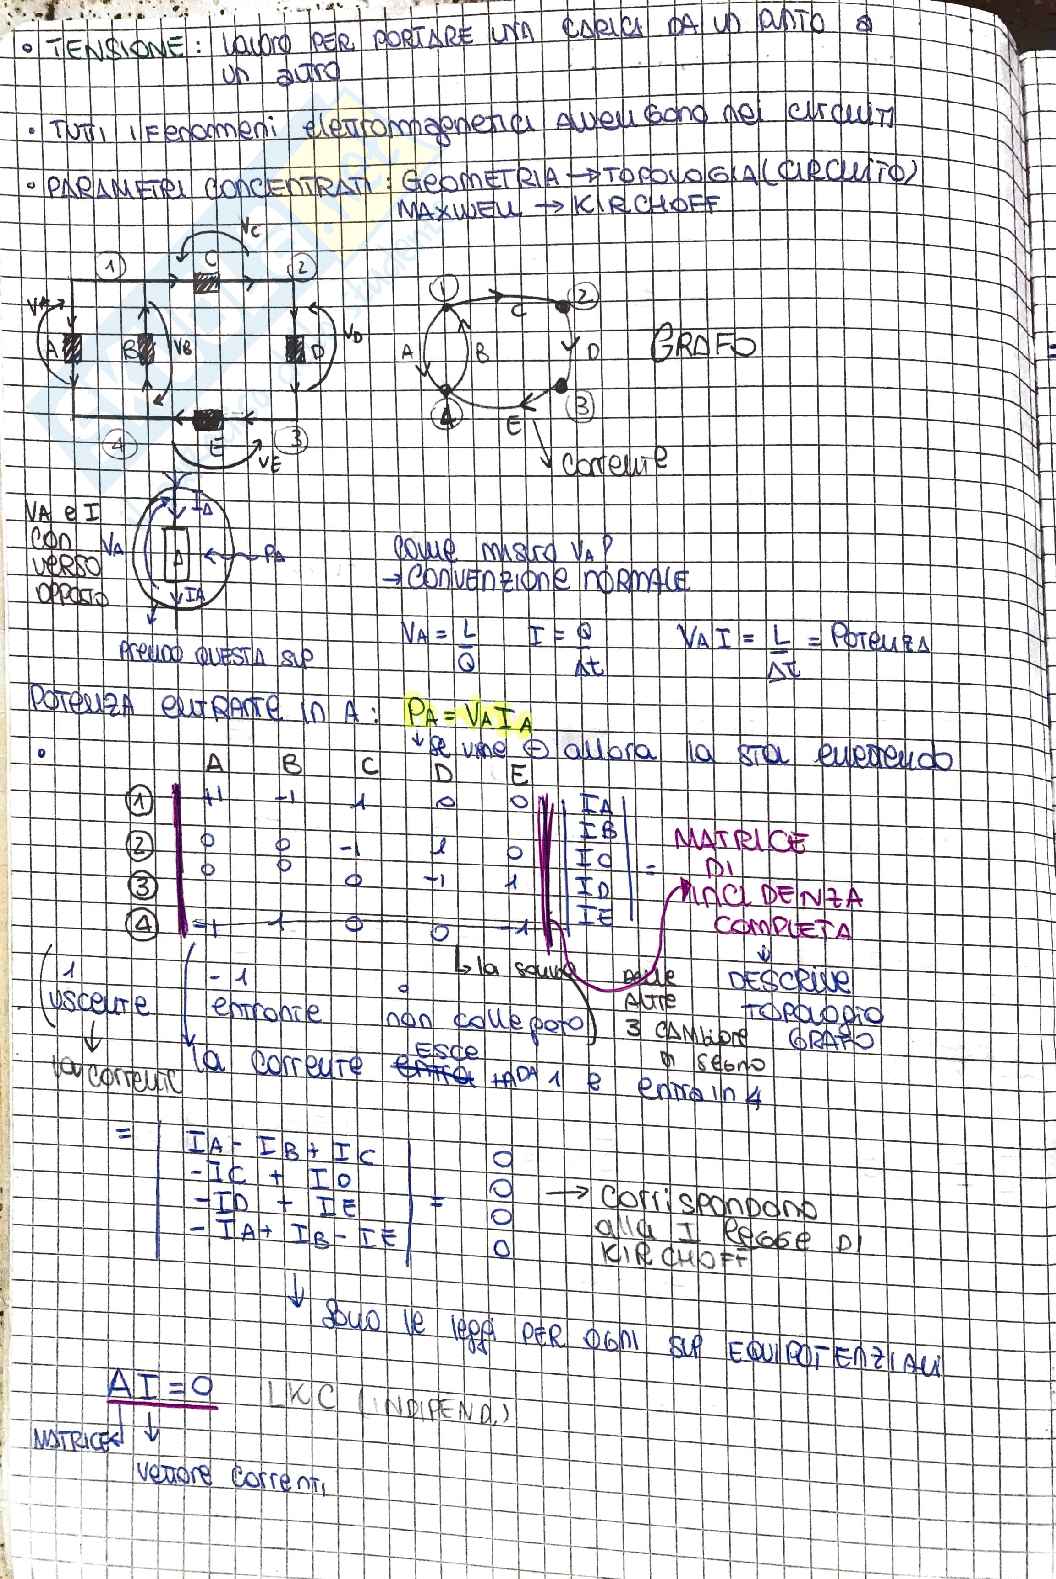 • TENSIONE: LAVORO PER PORTARE UNA CARICA DA UN PUNTO a
un altro
• TUTTI i Fenomeni elettromagnetici avvengono nei circuiti
• PARAMETRI CONCENTRATI: GEOMETRIA → TOPOLOGIA (CIRCUITO)
MAXWELL → KIRCHOFF
VC
1 C 2
VA A B VB D VD
4 E 3
VE
1 2
C
A B D
4 E 3
GRAFO
corrente
VA e I
CON
VERSO
OPPOSTO
VA IA
A PA
IA
Prendo QUESTA SUP
come misuro VA?
→ CONVENZIONE NORMALE
VA = L/Q I = Q/Δt VA I = L/Δt = POTENZA
POTENZA ENTRANTE IN A: PA = VA IA
↓ se viene ⊖ allora la sta emettendo
• A B C D E
1 +1 -1 1 0 0 IA
IB
2 0 0 -1 1 0 IC =
3 0 0 0 -1 1 ID
4 -1 1 0 0 -1 IE
MATRICE
DI
INCIDENZA
COMPLETA
↓
DESCRIVE
TOPOLOGIA
GRAFO
1
uscente
↓
la corrente
-1
entrante
0
non collegato
↳ la somma delle
altre
3 CAMBIARE
DI SEGNO
la corrente entra ESCE DA 1 e entra in 4
= IA - IB + IC 0
-IC + ID 0
-ID + IE = 0
-IA + IB - IE 0
→ corrispondono
alla I Legge DI
KIRCHOFF
↓ Sono le leggi PER OGNI SUP EQUIPOTENZIALI
AI = 0 LKC (INDIPEND.)
MATRICE
vettore correnti